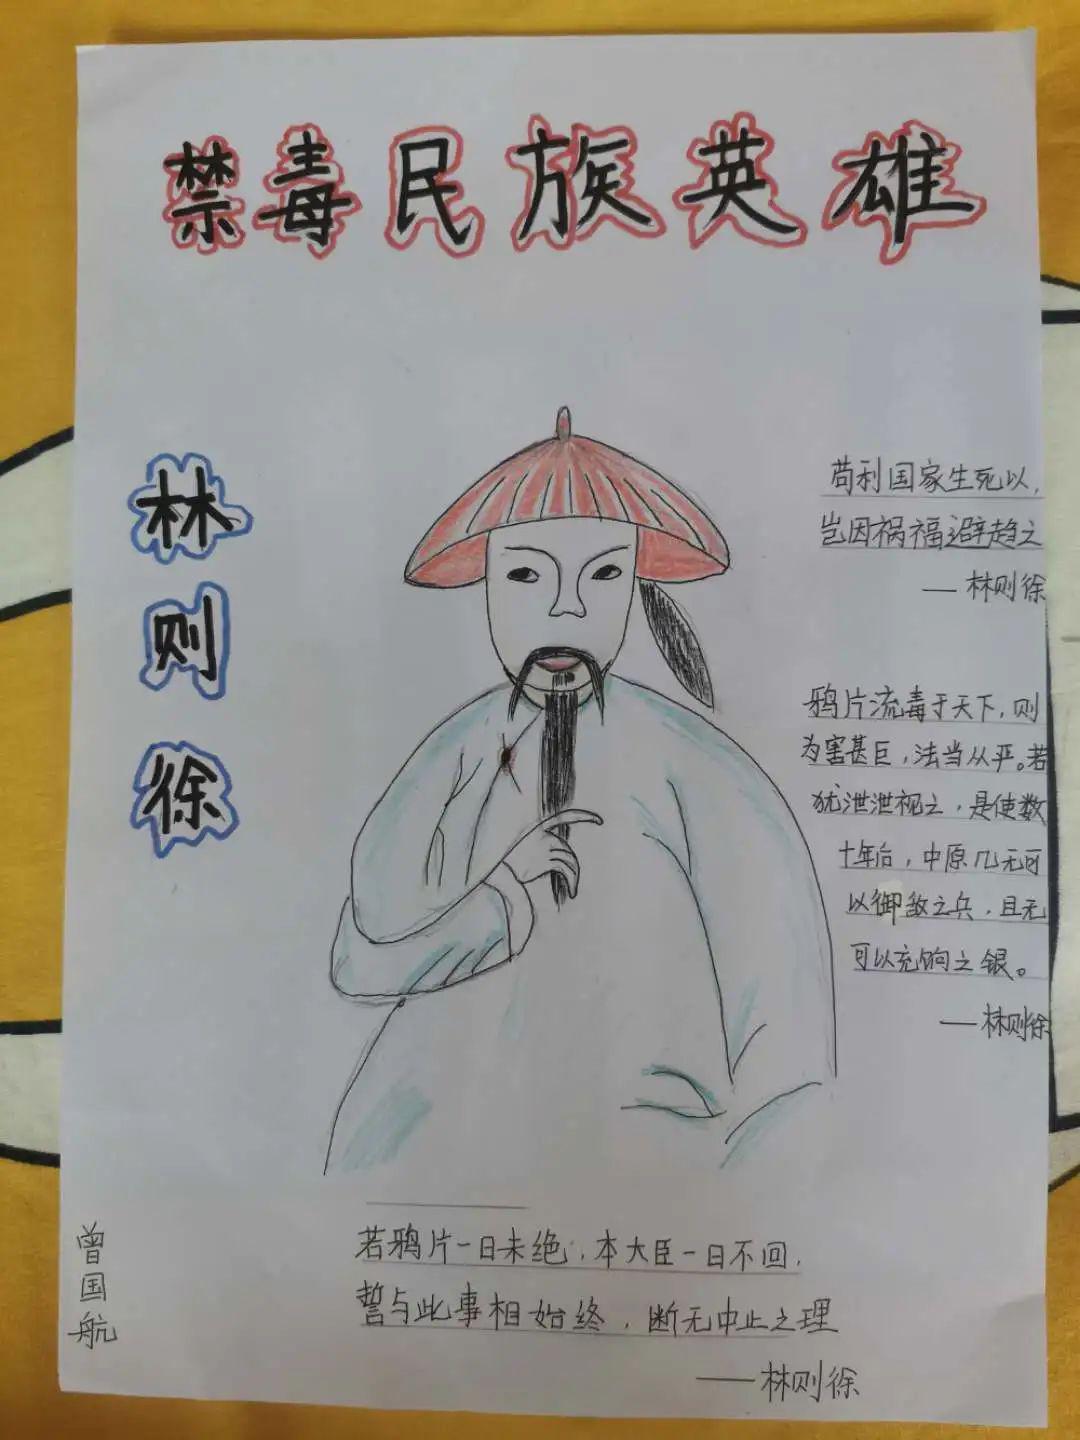 禁毒民族英雄
林则徐
苟利国家生死以,
岂因祸福避趋之
—林则徐
鸦片流毒于天下,则
为害甚巨,法当从严。若
犹泄泄视之,是使数
十年后,中原几无可
以御敌之兵,且无
可以充饷之银。
—林则徐
若鸦片一日未绝,本大臣一日不回,
誓与此事相始终,断无中止之理
——林则徐
曾国航